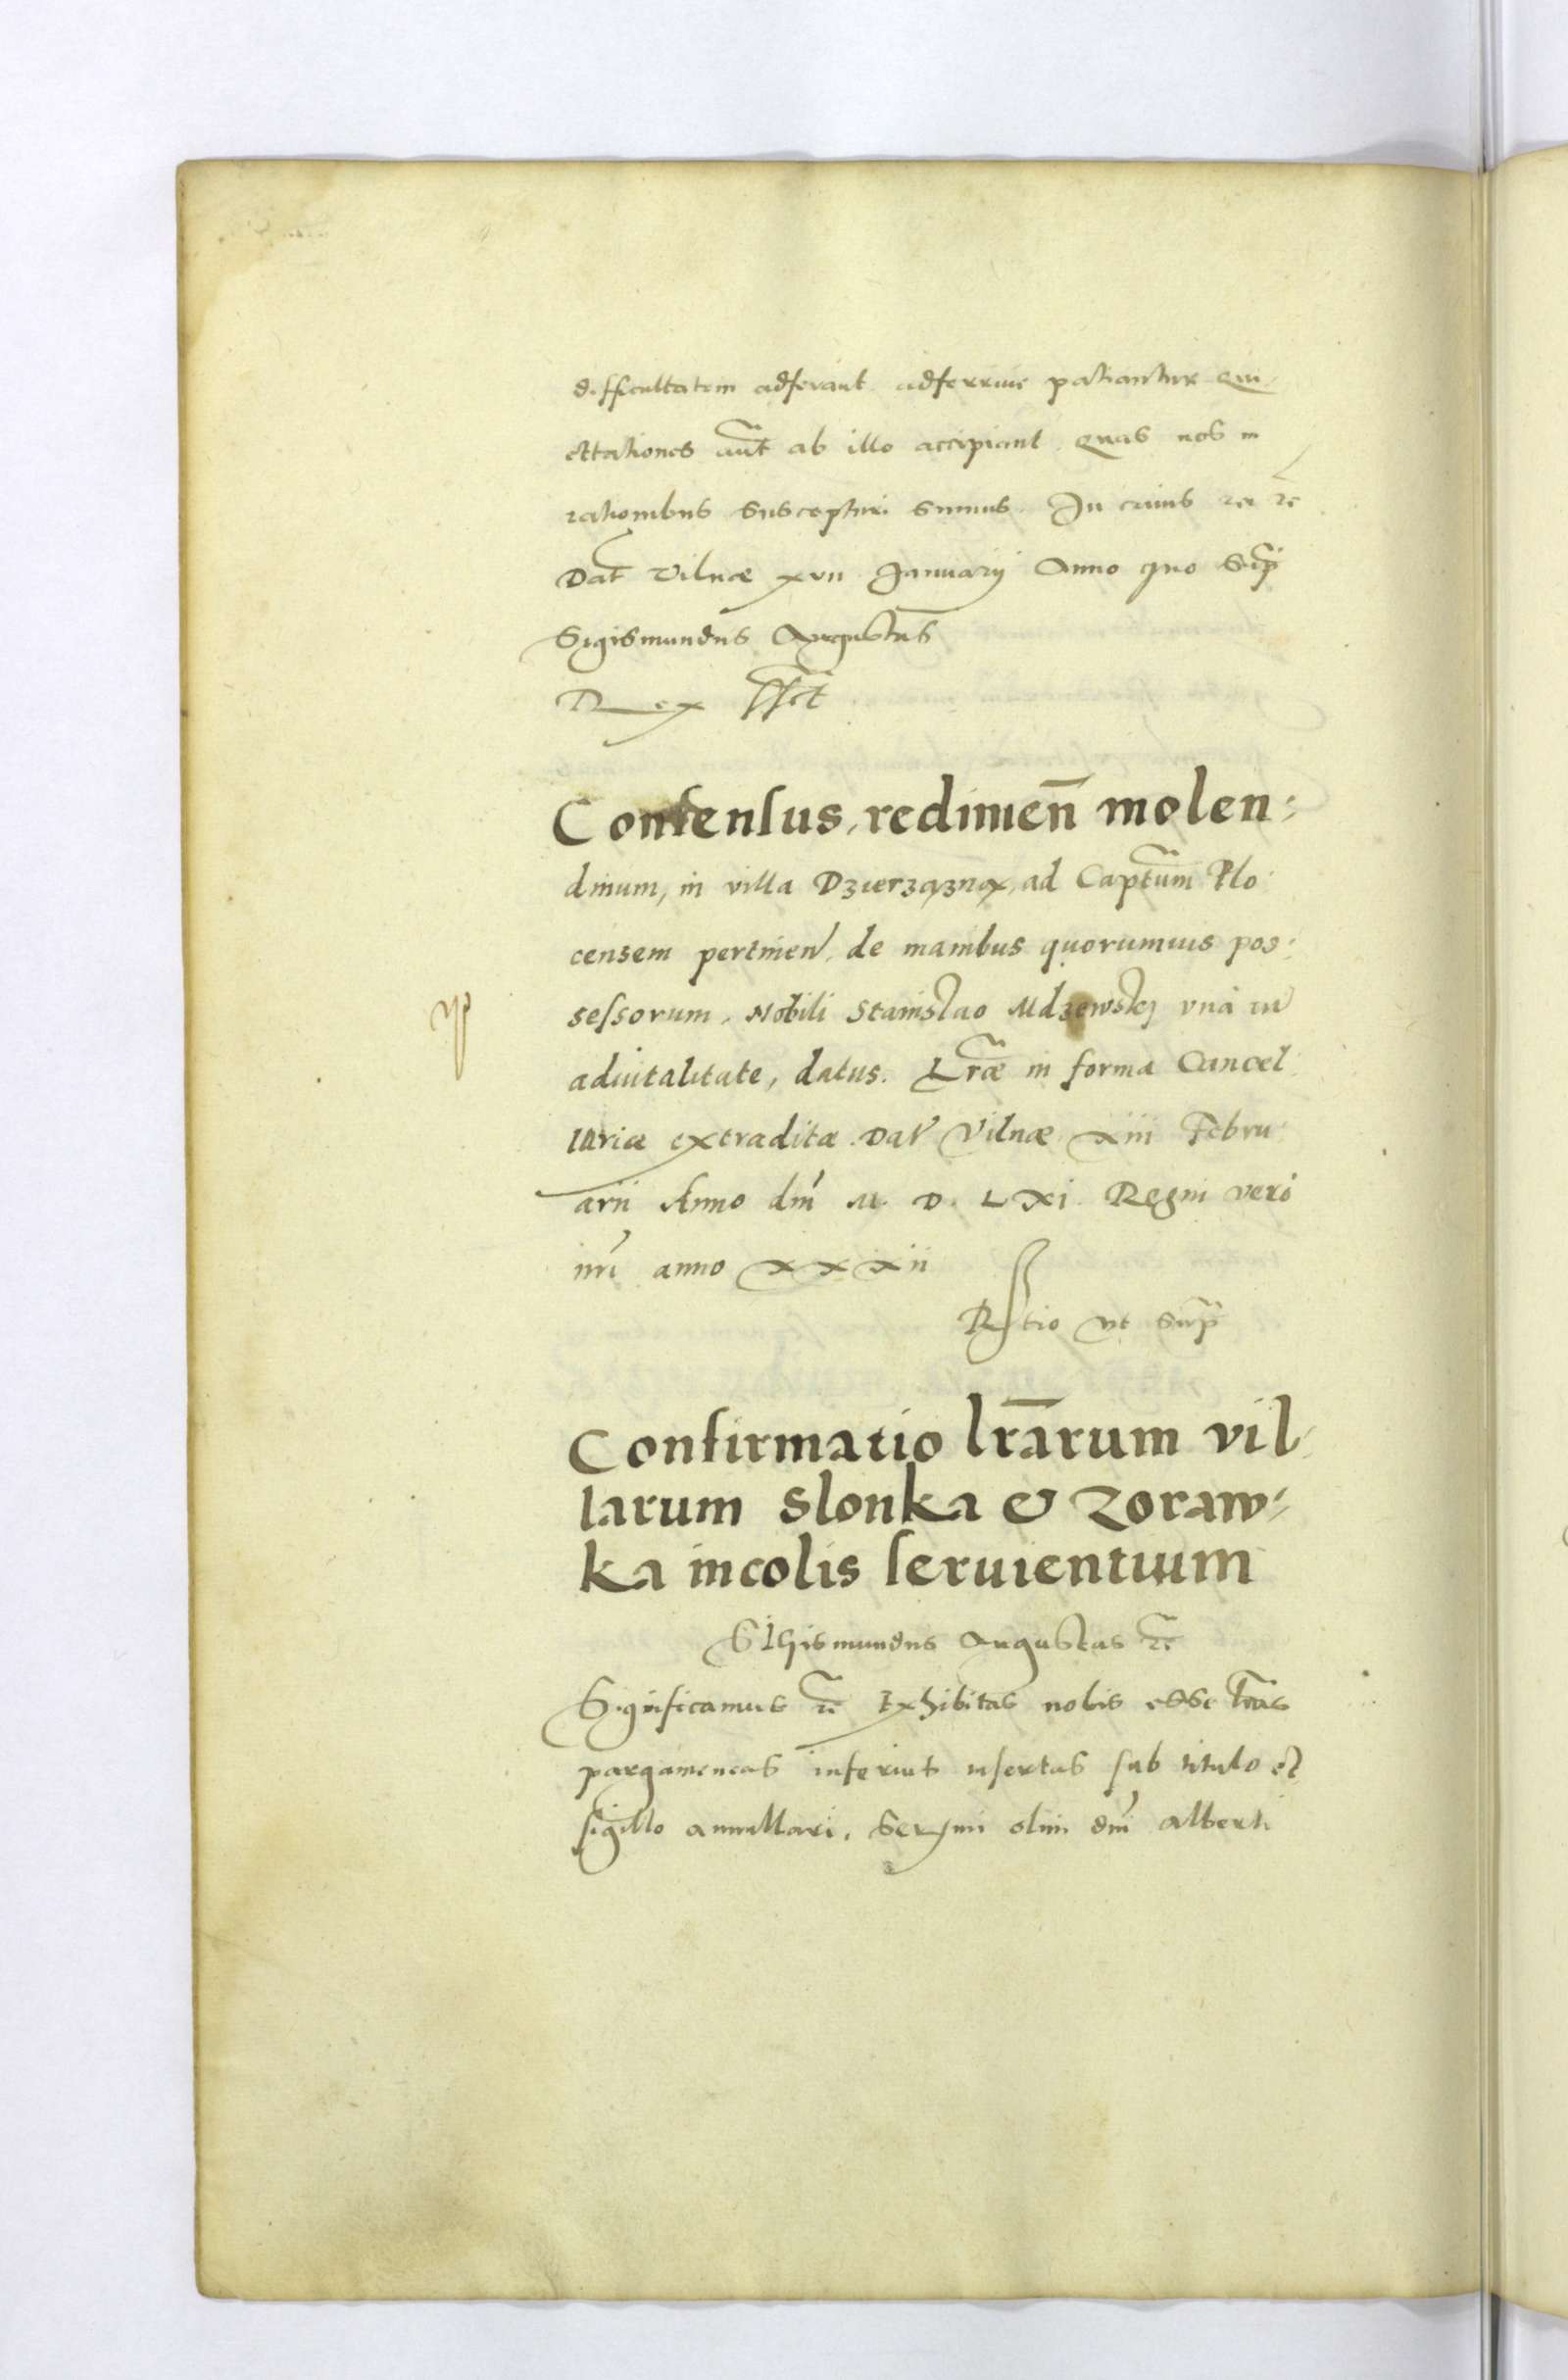 difficultatem adferant adferriue patiantur Qui
ettationes aut̃ ab illo accipiant quas nos in
rationibus suscepturi sumus. In cuius rei rc̃
Dat̃ Vilnæ xvii Januarij Anno quo Sup̃
Sigismundus Augustus
Rex sst̃
Consensus, redimen̄ molen:
dinum, in villa Dzierzązną, ad Capt̃um Plo
censem pertinen̄, de manibus quorumuis pos:
sessorum, Nobili Stanislao Mdzewskj vnà cū
aduitalitate, datus. Lr̃æ in forma Cancel
lariæ extraditæ Dat̃ Vilnæ xiii Febru
arii Anno dn̄i M. D. LXi Regni verò
nr̄i anno XXXii
Rtio vt sup̃
Confirmatio lr̄arum vil
larum Slonka & Zoraw:
ka incolis seruientium
Sigismundus Augustus rc̃
Significamus rc̃ Exhibitas nobis esse lr̃as
pargameneas inferius insertas sub titulo et
sigillo annullari, Sermi olim dn̄i Alberti